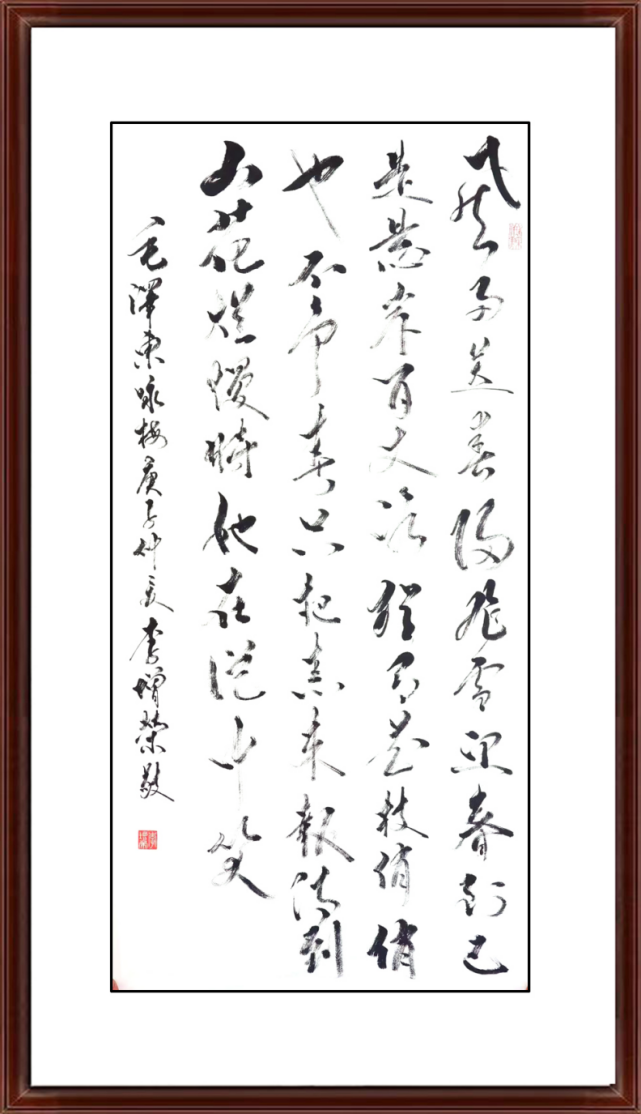 风雨送春归飞雪迎春到已
是悬崖百丈冰犹有花枝俏俏
也不争春只把春来報待到
山花烂漫時她在丛中笑
毛泽东咏梅庚子仲夏李增榮敬